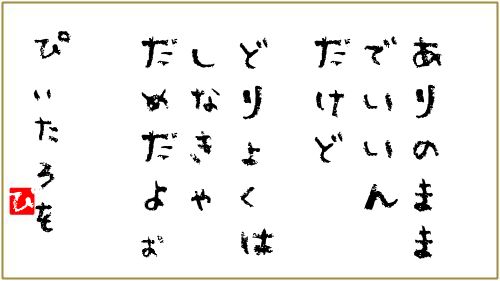 ありのまま
でいいん
だけど
どりょくは
しなきゃ
だめだよぉ
ぴいたろを
ひ